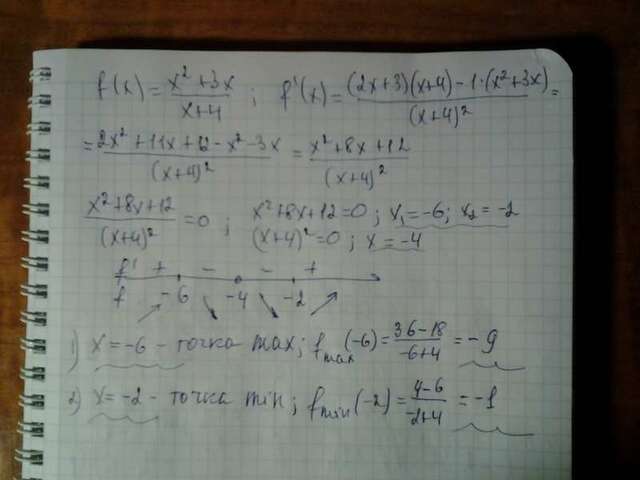 f(x) = (x² + 3x)/(x+4) ; f'(x) = ((2x+3)(x+4) - 1·(x²+3x))/(x+4)² =
= (2x² + 11x + 12 - x² - 3x)/(x+4)² = (x² + 8x + 12)/(x+4)²
(x² + 8x + 12)/(x+4)² = 0 ; x² + 8x + 12 = 0 ; x₁ = -6; x₂ = -2
(x+4)² = 0 ; x = -4
f' + - - +
f -6 -4 -2
1) x = -6 - точка max; f max (-6) = (36-18)/(-6+4) = -9
2) x = -2 - точка min; f min (-2) = (4-6)/(-2+4) = -1